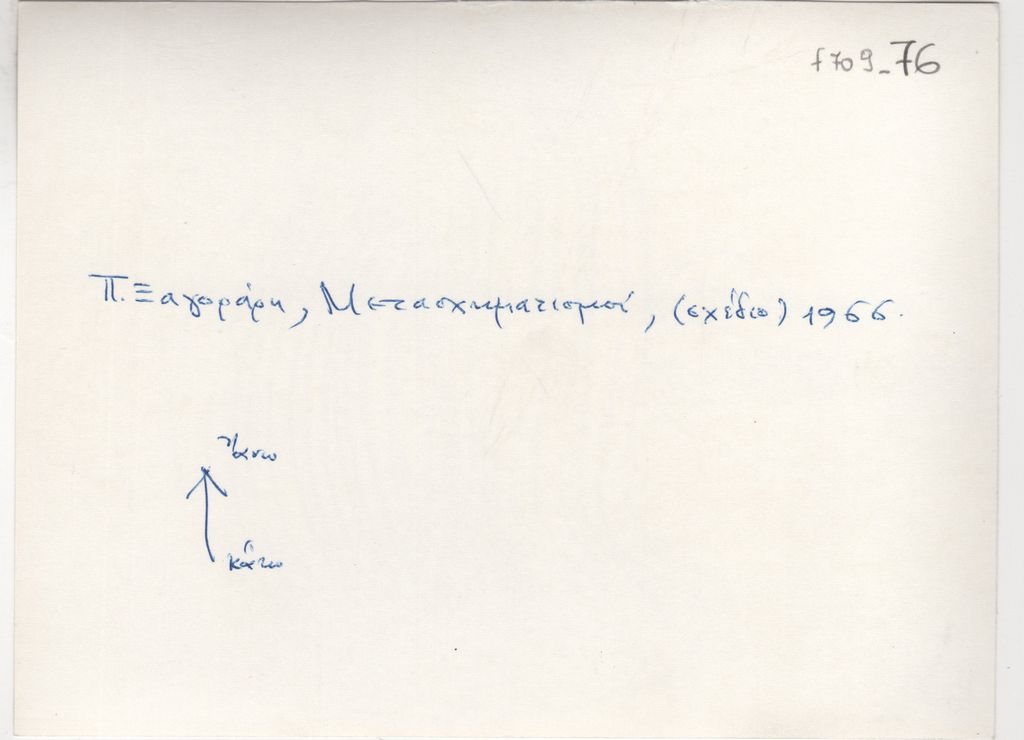 f709-76
Π. Ξαγοράρη, Μετασχηματισμοί, (σχέδιο) 1966.
ἄνω
κάτω